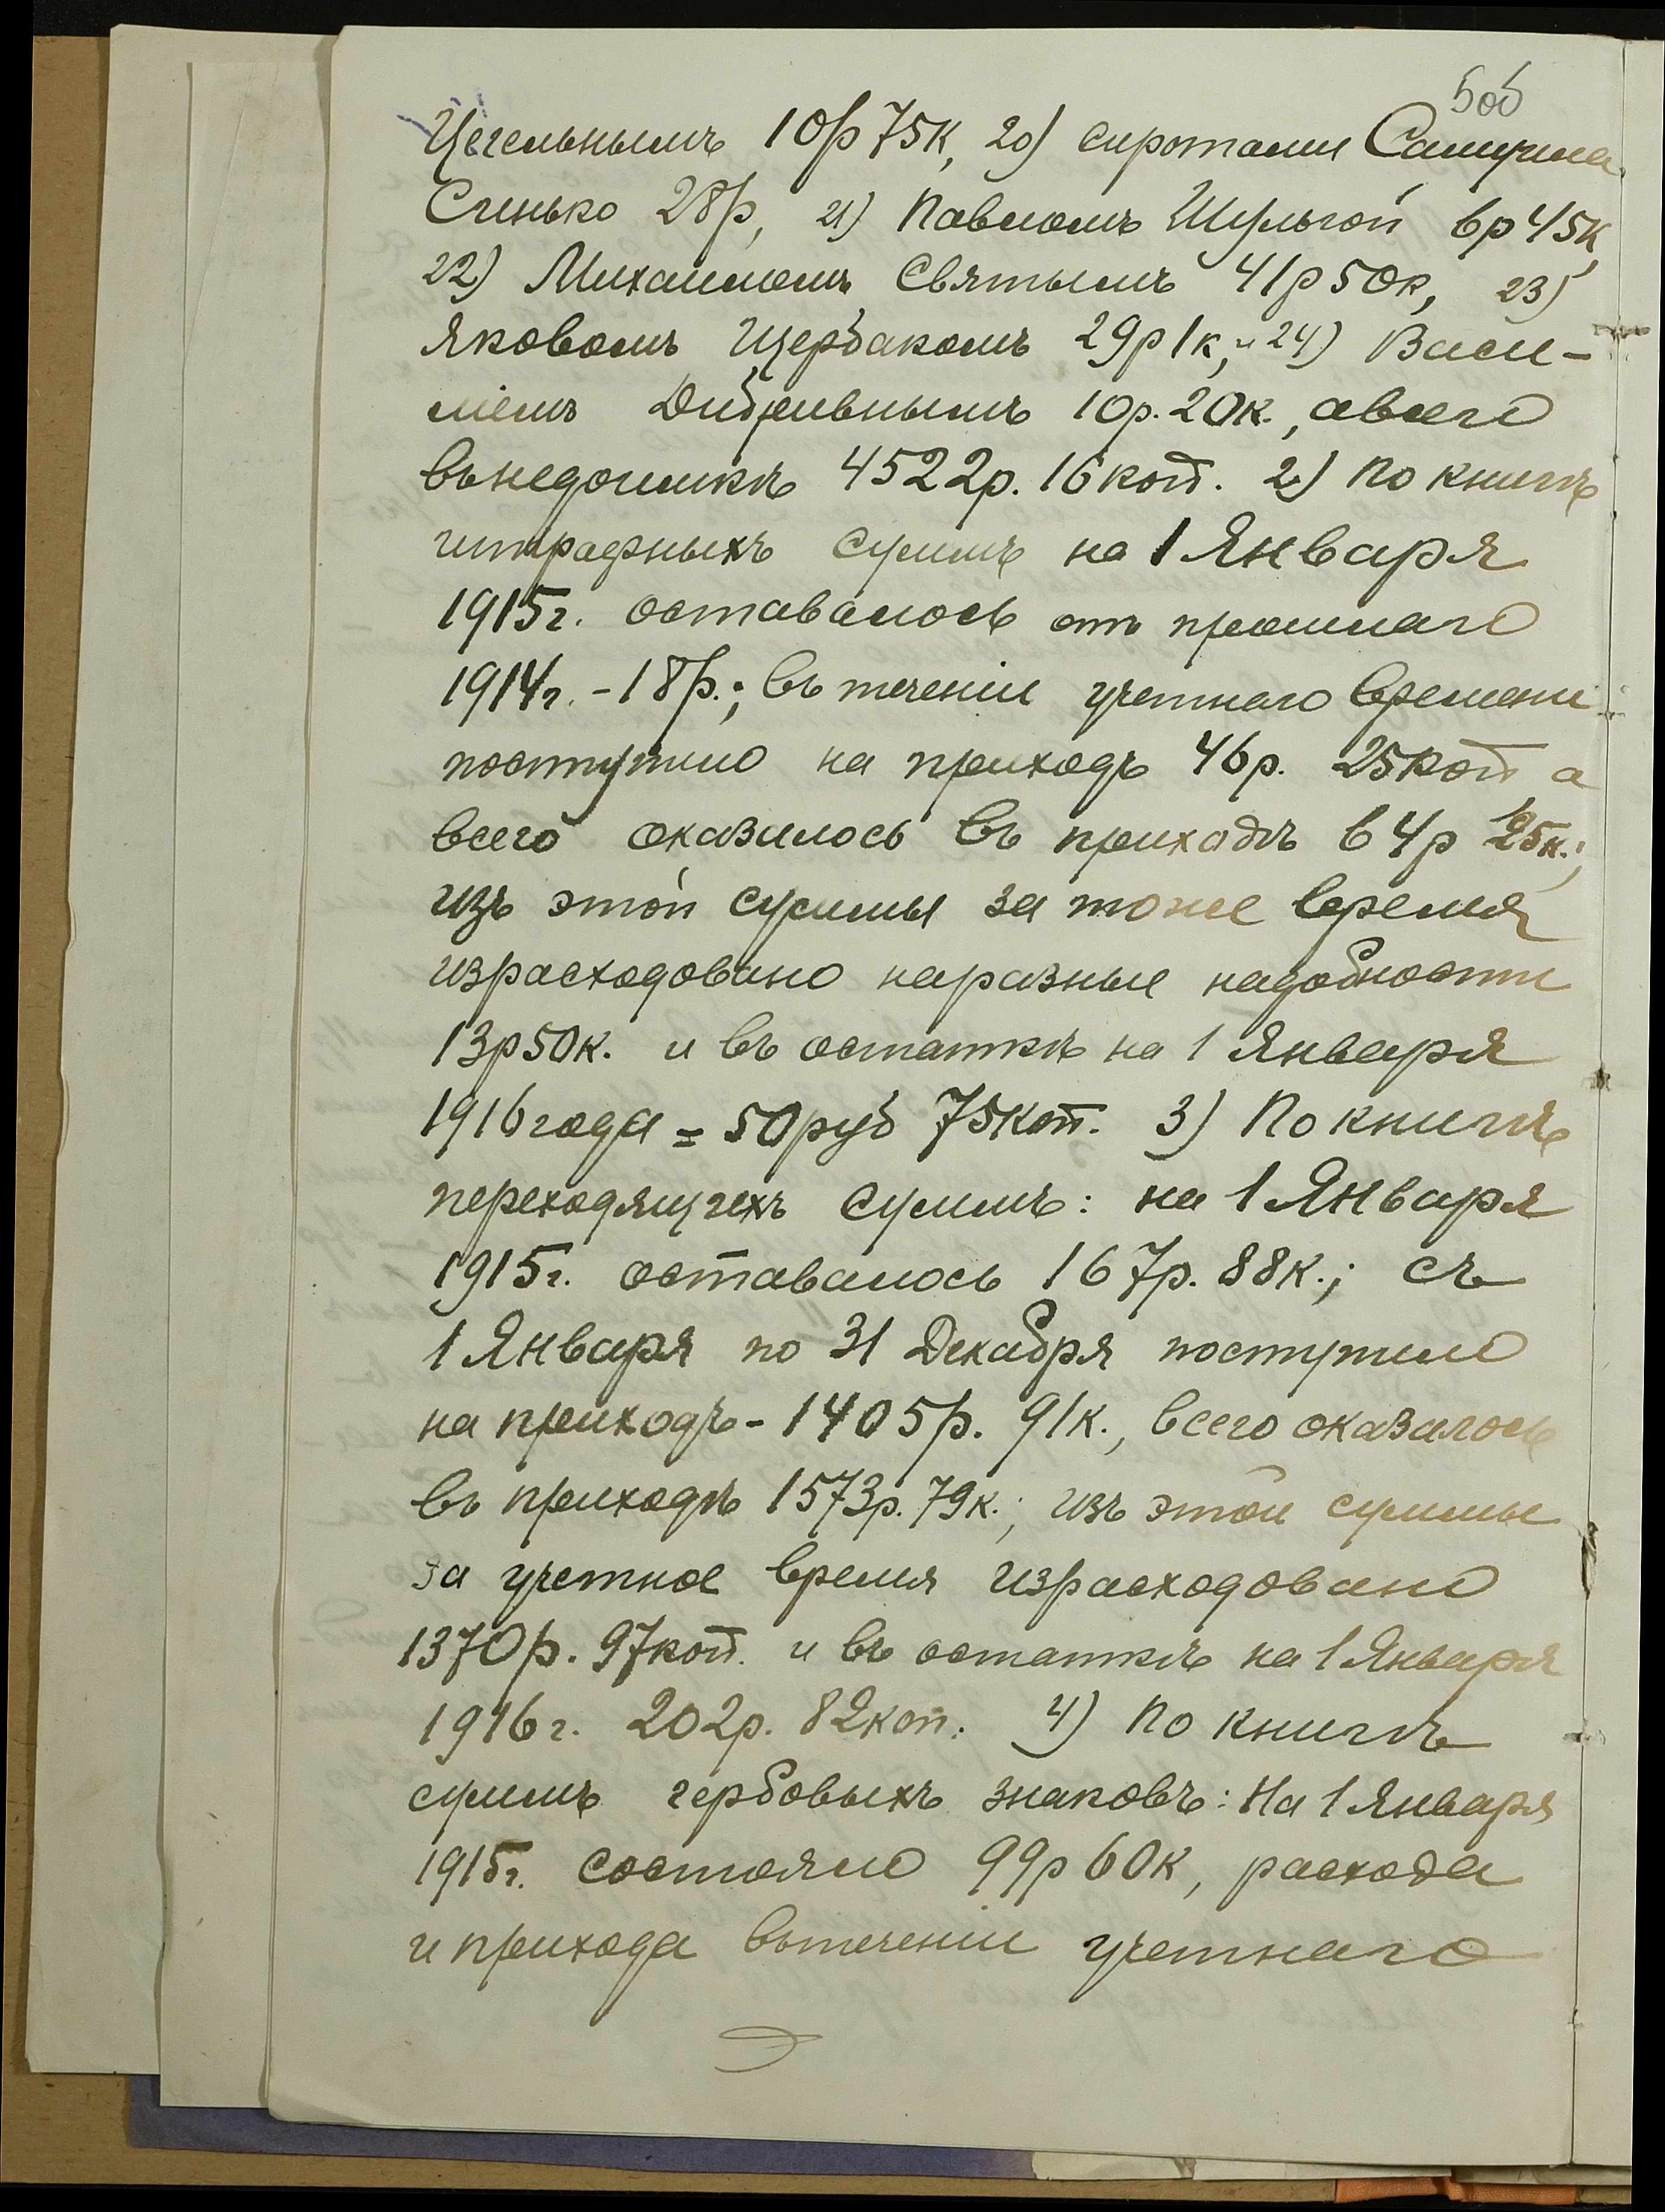 5об
Цегельнымъ 10р75к, 20) сиротами Самуила
Сенько 28р, 21) Павломъ Шульгой 6р45к,
22) Михаиломъ Святымъ 41р50к, 23)
Яковомъ Щербакомъ 29р1к, и 24) Васи-
ліемъ Дибривнымъ 10р.20к., авсего
внедоимкѣ 4522р. 16коп. 2) По книгѣ
штрафныхъ суммъ на 1 Января
1915г. оставалось отъ прошлаго
1914г. - 18р.; въ теченіи учетнаго времени
поступило на приходъ 46р. 25коп а
всего оказалось въ приходѣ 64р 25к.;
изъ этой суммы за тоже время
израсходовано наразные надобности
13р50к. и въ остаткѣ на 1 Января
1916года = 50руб 75коп. 3) По книгѣ
переходящихъ суммъ: на 1 Января
1915г. оставалось 167р. 88к.; съ
1 Января по 31 Декабря поступило
на приходъ - 1405р. 91к., всего оказалось
въ приходѣ 1573р. 79к.; изъ этой суммы
за учетное время израсходовано
1370р. 97коп. и въ остаткѣ на 1 Января
1916г. 202р. 82коп. 4) По книгѣ
суммъ гербовыхъ знаковъ: На 1 Января
1915г. состояло 99р60к, расхода
и прихода втеченіи учетнаго